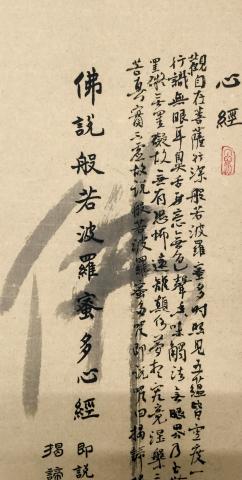 心經
觀自在菩薩行深般若波羅蜜多時照見五蘊皆空度一
行識無眼耳鼻舌身意無色聲香味觸法無眼界乃至
罣礙無罣礙故無有恐怖遠離顛倒夢想究竟涅槃三
苦真實不虛故說般若波羅蜜多咒即說咒曰揭諦
佛說般若波羅蜜多心經
即說
揭諦